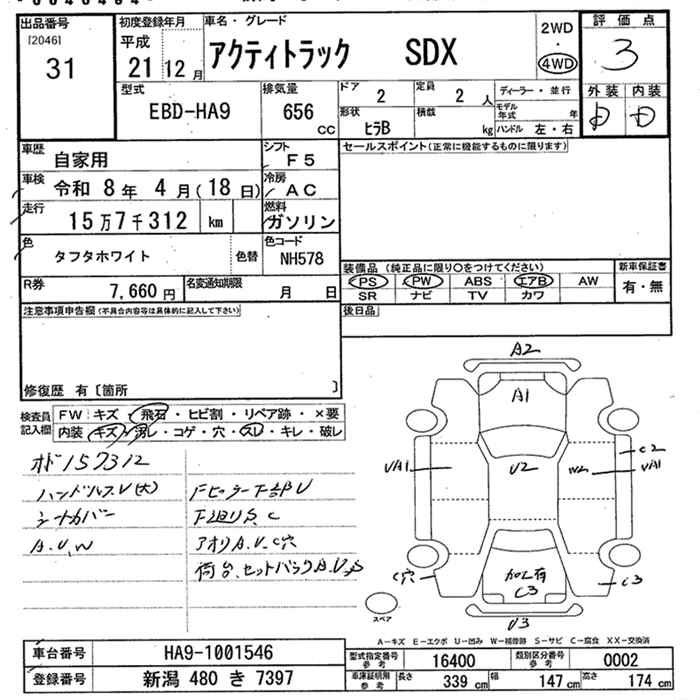 出品番号
[2046]
31
初度登録年月
平成
21 12月
車名・グレード
アクティトラック SDX
2WD
・
4WD
評価点
3
外装 内装
D D
型式
EBD-HA9
排気量
656 cc
ドア
2
定員
2 人
ディーラー・並行
形状
ヒラB
積載
kg
モデル年式 年
ハンドル 左・右
車歴
自家用
シフト
F5
車検
令和 8年 4月(18日)
冷房
AC
走行
15万7千312 km
燃料
ガソリン
色
タフタホワイト
色替
色コード
NH578
R券
7,660円
名変通知期限
月 日
セールスポイント(正常に機能するものに限ります)
装備品(純正品に限り○をつけてください)
新車保証書
PS PW ABS エアB AW
有・無
SR ナビ TV カワ
注意事項申告欄(不具合内容等は具体的に記入して下さい)
後日品
修復歴 有〔箇所 〕
検査員記入欄
FW キズ・飛石・ヒビ割・リペア跡・×要
内装 キズ・汚レ・コゲ・穴・スレ・キレ・破レ
オド157312
ハンドルスレ(大)
シートカバー
A.U.W
Fピラー下部U
F廻りS.C
アオリA.U.C穴
荷台、セットバックA.U.S
A2
A1
UA1
U2
W2
C2
UA1
C穴
加工有
C3
C3
U3
スペア
A−キズ E−エクボ U−凹み W−補修跡 S−サビ C−腐食 XX−交換済
車台番号
HA9-1001546
登録番号
新潟 480 き 7397
型式指定番号
参考
16400
類別区分番号
参考
0002
車庫証明用
参考
長さ 339 cm
幅 147 cm
高さ 174 cm